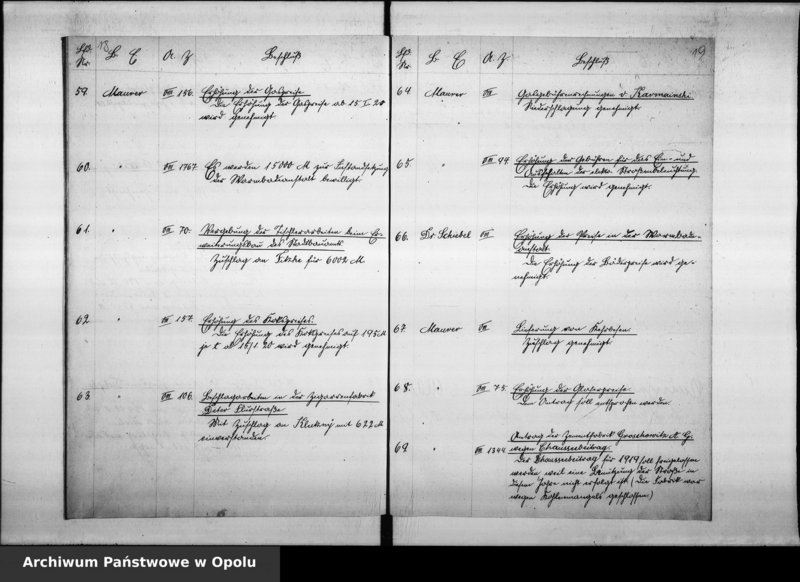 18
Lfd. Nr. B. E A. Z Beschluß
59. Maurer VII 156. Erhöhung der Gaspreise
Die Erhöhung der Gaspreise ab 15 I 20
wird genehmigt.
60. " VII 1767. Es werden 15000 M zur Instandsetzung
der Warmbadeanstalt bewilligt.
61. " VII 70. Vergebung der Tischlerarbeiten beim Er-
weiterungsbau des Stadtbauamts
Zuschlag an für 6002 M.
62. " VII 157. Erhöhung des Kokspreises.
Die Erhöhung des Kokspreises auf 195 M
je t ab 15/1 20 wird genehmigt.
63. " VII 106. Beschlagarbeiten in der Zigarrenfabrik
Mit Zuschlag an mit 622 M
einverstanden.
19
Lfd. Nr. B. E A. Z Beschluß
64 Maurer VII v. Karmainski
Niederschlagung genehmigt.
65. " VII 94. Erhöhung der Gebühren für das Ein- und
Ausschalten der elektr. Straßenbeleuchtung.
Die Erhöhung wird genehmigt.
66. Dr. Schebel VII Erhöhung der Preise in der Warmbade-
anstalt.
Die Erhöhung der Bäderpreise wird ge-
nehmigt.
67. Maurer VII Lieferung von Kehrbesen.
Zuschlag genehmigt
68. " VII 75. Erhöhung der
Dem Antrag soll entsprochen werden.
69 " VII 1344 Antrag der Zementfabrik Groschowitz A. G.
wegen Chausseebeitrag.
Der Chausseebeitrag für 1919 soll
werden weil eine Benutzung der Straße in
diesem Jahre nicht erfolgt ist (die Fabrik war
wegen Kohlenmangels geschlossen)
Archiwum Państwowe w Opolu